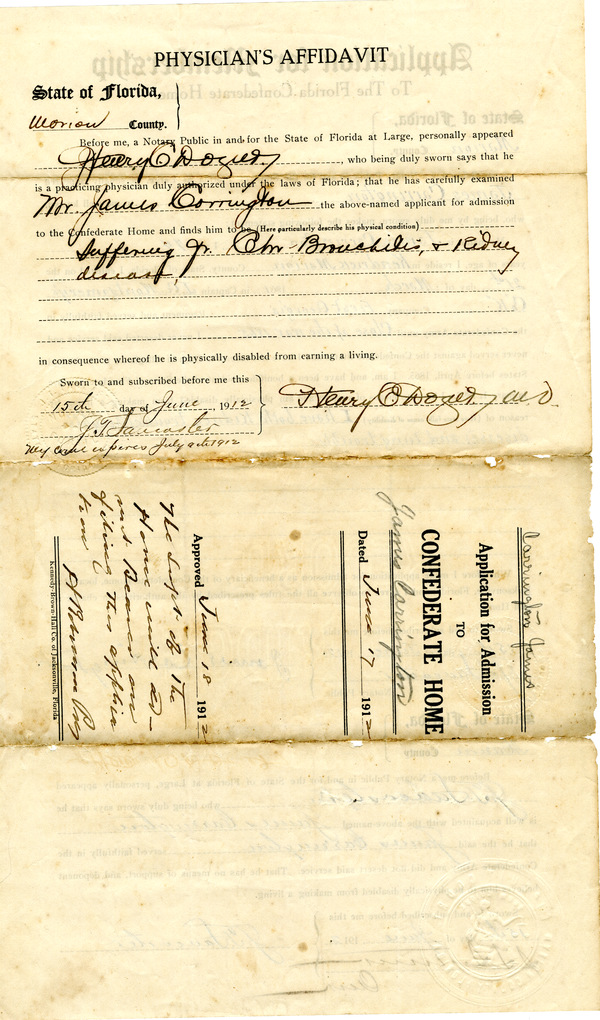 PHYSICIAN'S AFFIDAVIT
State of Florida,
Marion County.
Before me, a Notary Public in and for the State of Florida at Large, personally appeared
Henry C Dozier, who being duly sworn says that he
is a practicing physician duly authorized under the laws of Florida; that he has carefully examined
Mr. James Carrington the above-named applicant for admission
to the Confederate Home and finds him to be (Here particularly describe his physical condition)
Suffering fr. Chr Bronchitis, & Kidney
disease,
in consequence whereof he is physically disabled from earning a living.
Sworn to and subscribed before me this
15th day of June, 1912
Henry C Dozier, MD
J T Lancaster
My Com expires July 1912
Carrington James
Application for Admission
TO
CONFEDERATE HOME
James Carrington
Dated June 17 1912
Approved June 18 1912
The Supt of The
Home will ad-
mit Bearer on
filing this applica
tion
Kennedy-Brown-Hall Co. of Jacksonville, Florida